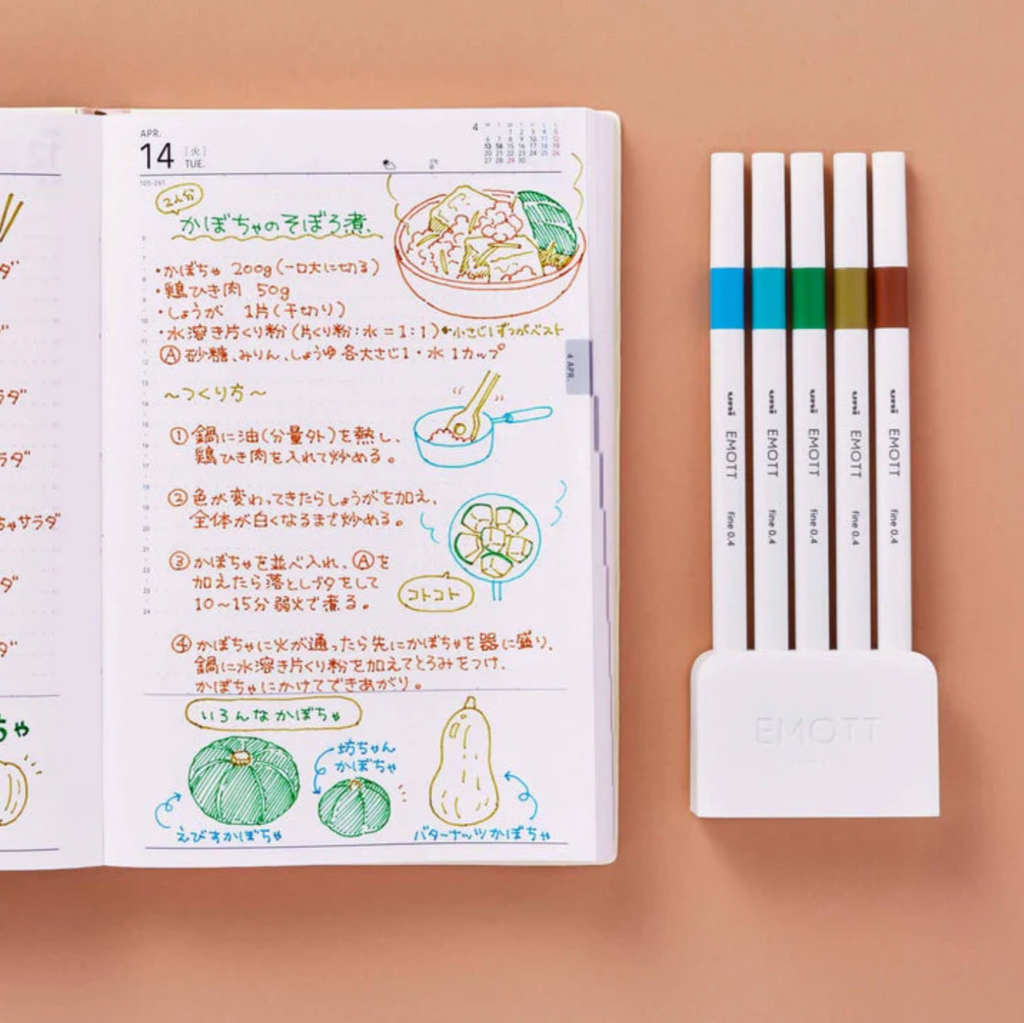 APR.
14
[火]
TUE.
105-261
4
1 2 3 4 5
6 7 8 9 10 11 12
13 14 15 16 17 18 19
20 21 22 23 24 25 26
27 28 29 30
2人分
かぼちゃのそぼろ煮.
・かぼちゃ 200g(一口大に切る)
・鶏ひき肉 50g
・しょうが 1片(千切り)
・水溶き片くり粉(片くり粉:水=1:1)小さじ1ずつがベスト
Ⓐ砂糖、みりん、しょうゆ各大さじ1・水1カップ
〜つくり方〜
①鍋に油(分量外)を熱し、
鶏ひき肉を入れて炒める。
②色が変わってきたらしょうがを加え、
全体が白くなるまで炒める。
③かぼちゃを並べ入れ、Ⓐを
加えたら落としブタをして
10〜15分弱火で煮る。
コトコト
④かぼちゃに火が通ったら先にかぼちゃを器に盛り、
鍋に水溶き片くり粉を加えてとろみをつけ、
かぼちゃにかけてできあがり。
いろんなかぼちゃ
坊ちゃん
かぼちゃ
えびすかぼちゃ
バターナッツかぼちゃ
4 APR.
ダ
ラダ
ラダ
ちゃサラダ
ダ
ちゃ
uni EMOTT fine 0.4
uni EMOTT fine 0.4
uni EMOTT fine 0.4
uni EMOTT fine 0.4
uni EMOTT fine 0.4
EMOTT